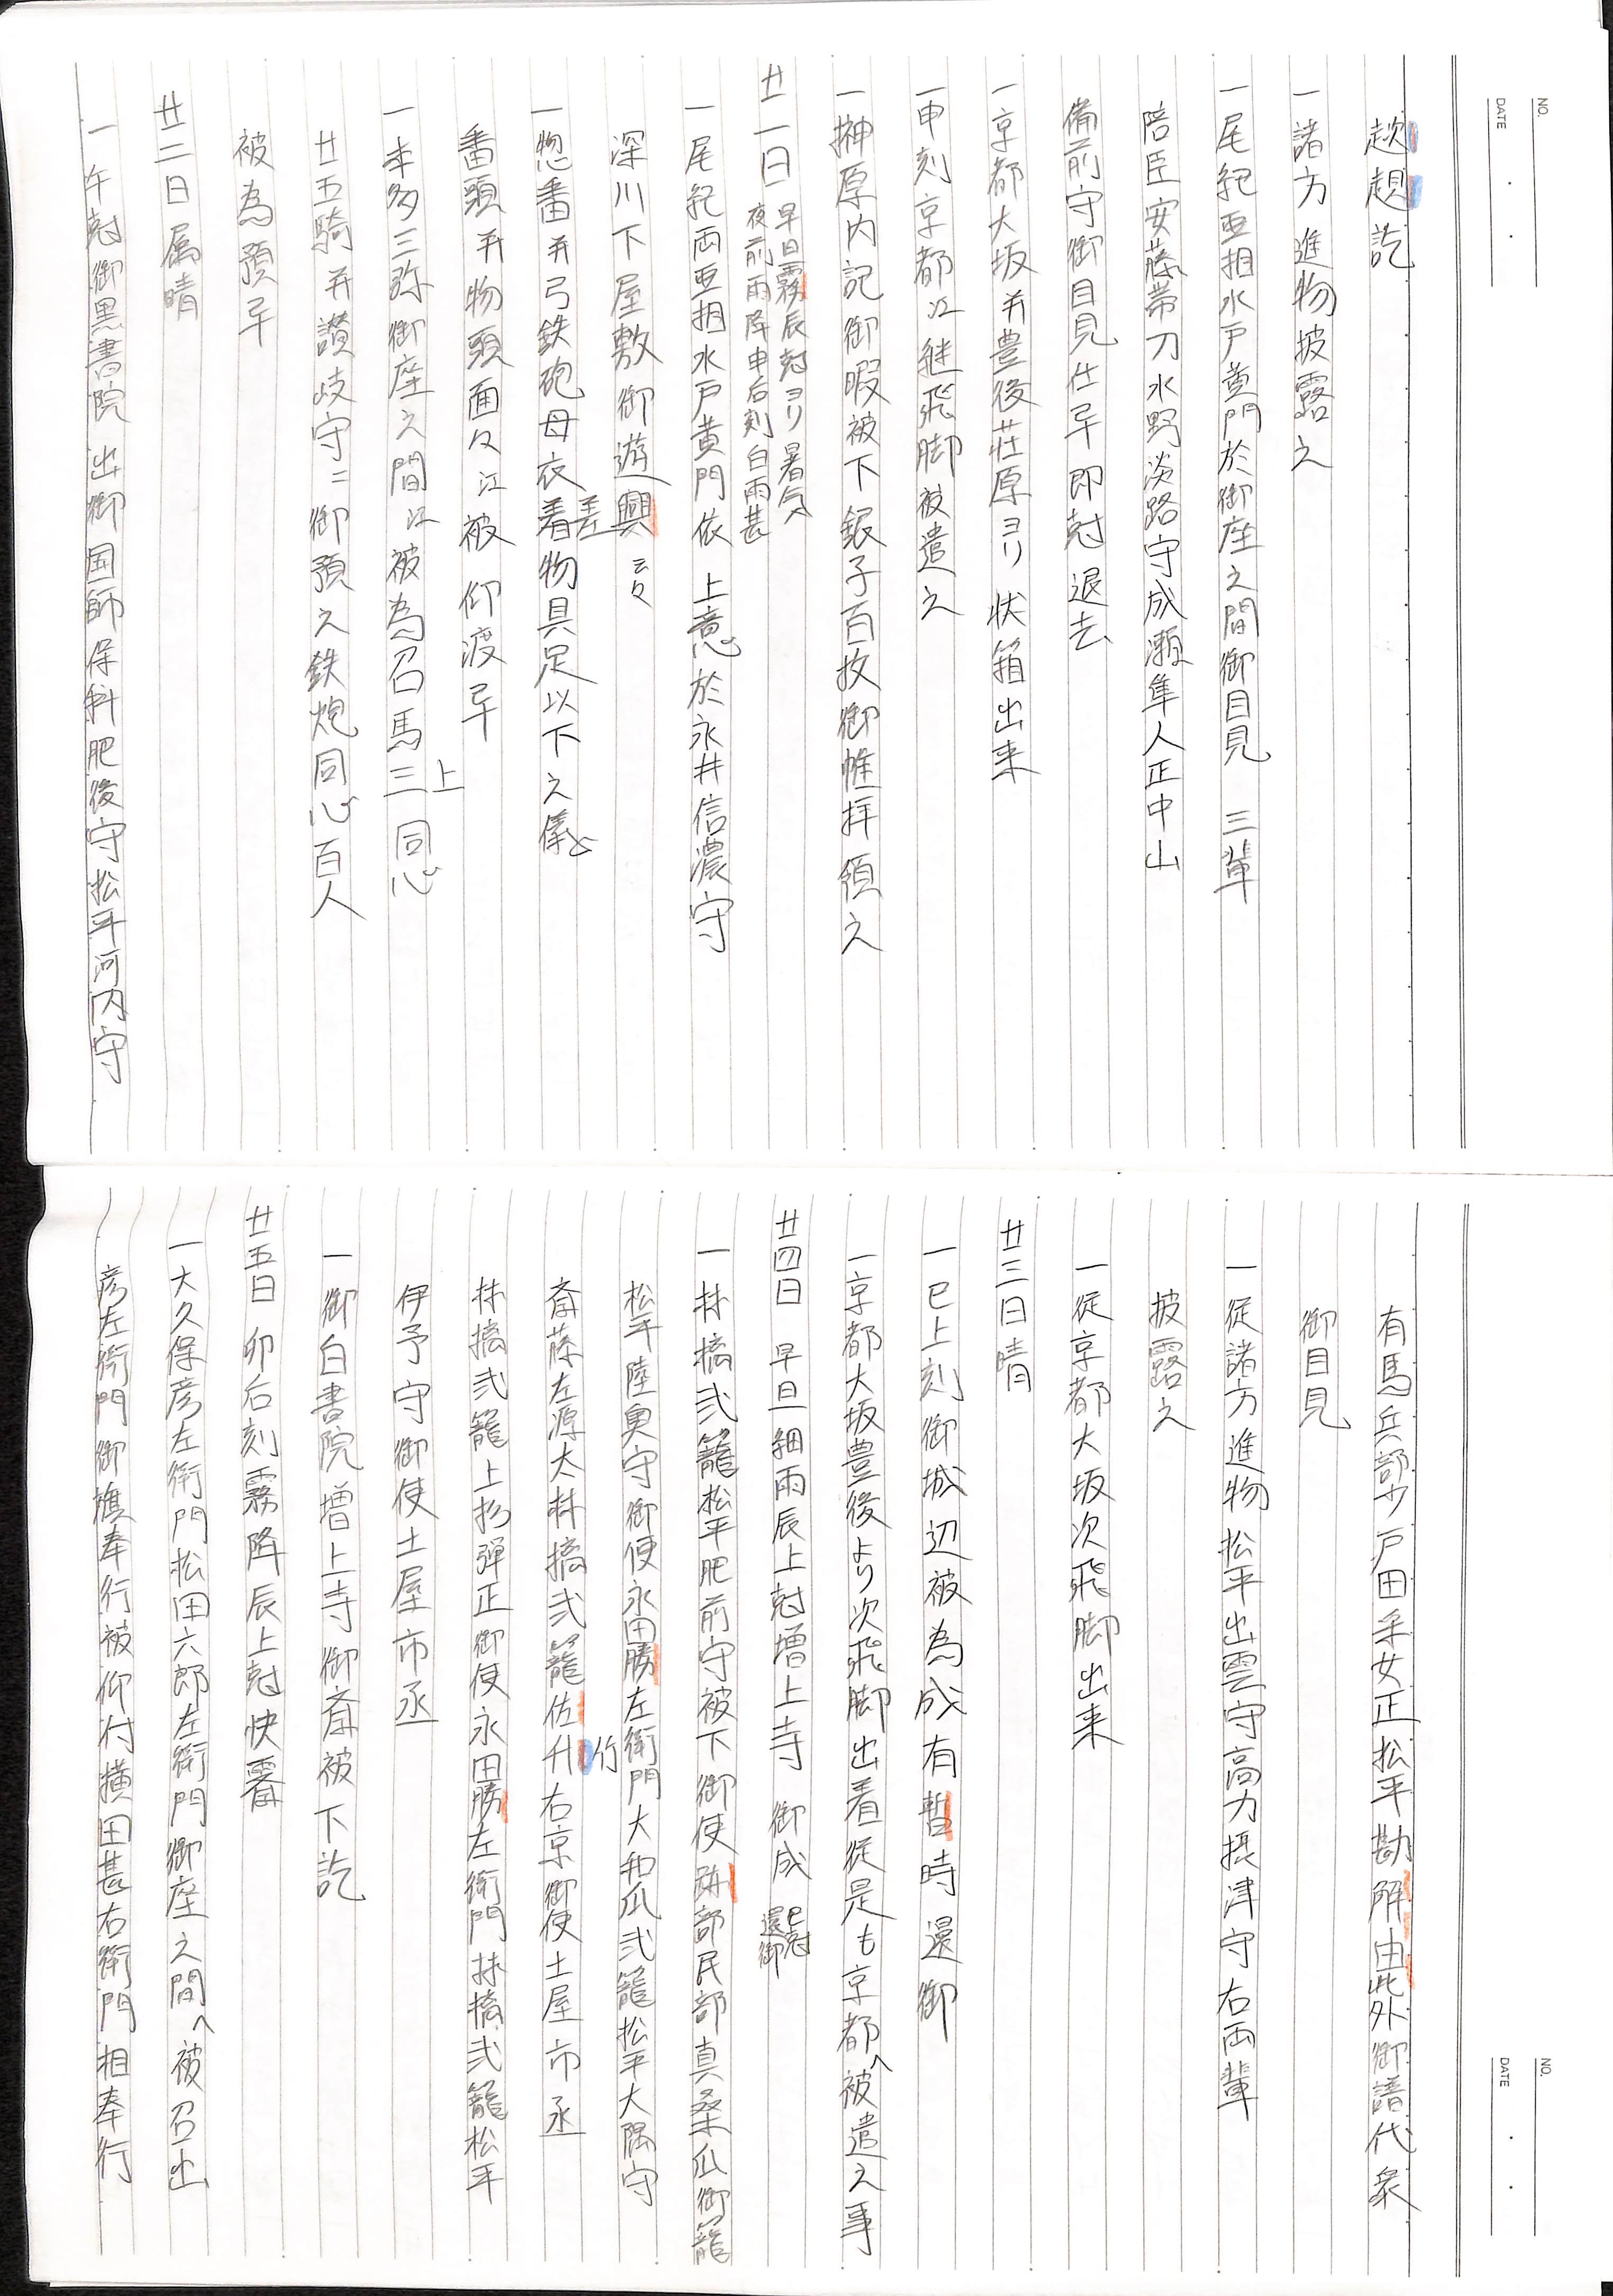 NO.
DATE
趁趣訖
一諸方進物披露之
一尾紀亜相水戸黄門於御座之間御目見 三輩
陪臣安藤帯刀水野淡路守成瀬隼人正中山
備前守御目見仕早即尅退去
一京都大坂并豊後荘原ヨリ状箱出来
一申刻京都江継飛脚被遣之
一榊原内記御暇被下銀子百枚御帷拝領之
廿一日 早旦霧辰尅ヨリ暑気
夜前雨降申后刻白雨甚
一尾紀両亜相水戸黄門依 上意於永井信濃守
深川下屋敷御遊興云々
一惣番并弓鉄砲母衣着差物具足以下之儀
番頭并物頭面々江被 仰渡早
一本多三弥御座之間江被為召馬三上同心
廿五騎并讃岐守ニ御預之鉄炮同心百人
被為預早
廿二日属晴
一午尅御黒書院 出御国師保科肥後守松平河内守
NO.
DATE
有馬兵部少戸田采女正松平勘解由此外御譜代衆
御目見
一従諸方進物松平出雲守高力摂津守右両輩
披露之
一従京都大坂次飛脚出来
廿三日晴
一巳上刻御城辺被為成有暫時還御
一京都大坂豊後より次飛脚出着従是も京都へ被遣之事
廿四日 早旦細雨辰上尅増上寺 御成 巳尅
還御
一林檎弐籠松平肥前守被下御使跡部民部真桑瓜御籠
松平陸奥守御使永田勝左衛門大和瓜弐籠松平大隅守
斎藤左源太林檎弐籠佐升竹右京御使土屋市丞
林檎弐籠上杉弾正御使永田勝左衛門林檎弐籠松平
伊予守御使土屋市丞
一御白書院増上寺御斎被下訖
廿五日 卯后刻霧降辰上尅快霽
一大久保彦左衛門松田六郎左衛門御座之間へ被召出
彦左衛門御旗奉行被仰付横田甚右衛門相奉行